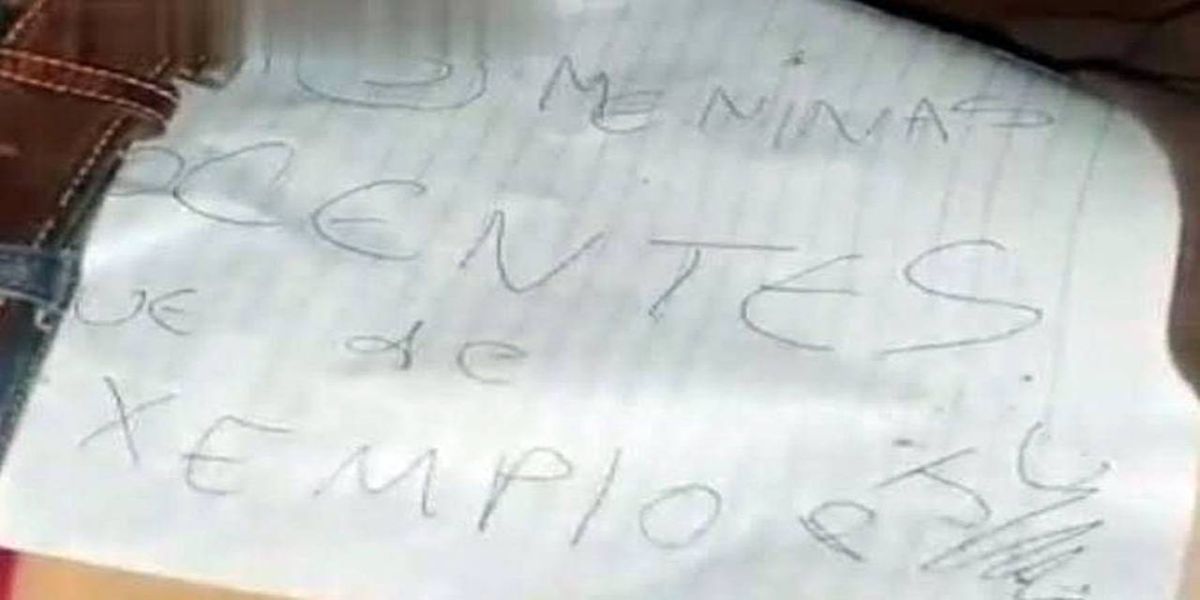 MENINAS
OCENTES
UE de
XEMPIO e